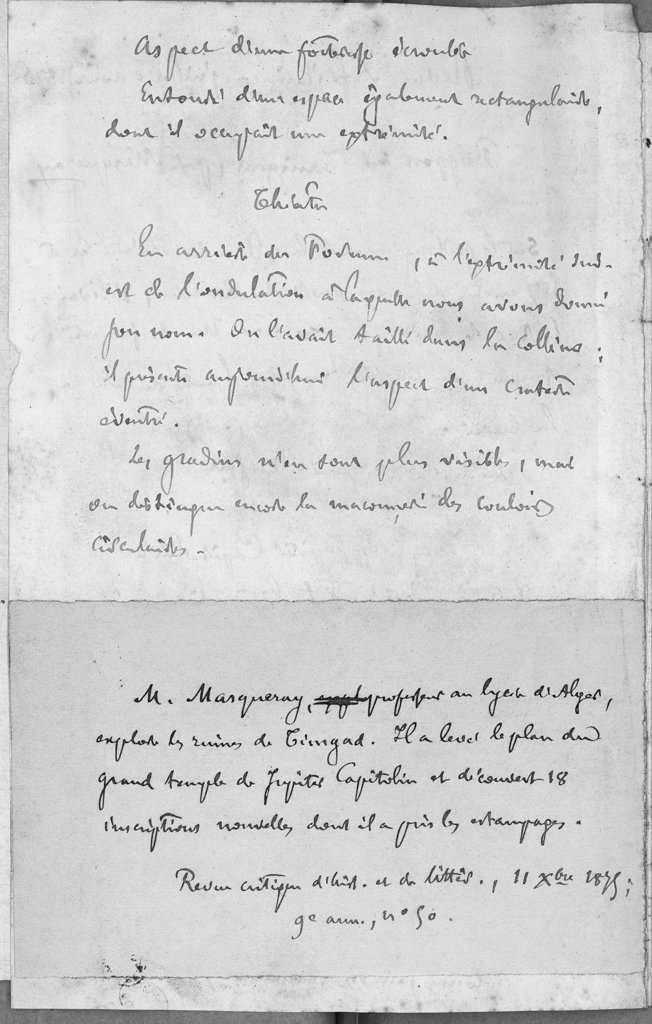 Aspect d'une forteresse écroulée
Entouré d'un espace également rectangulaire,
dont il occupait une extrémité.
Théâtre
En arrière du Forum, à l'extrémité sud-
est de l'ondulation à laquelle nous avons donné
son nom. On l'avait taillé dans la colline ;
il présente aujourd'hui l'aspect d'un cratère
éventré.
Les gradins n'en sont plus visibles, mais
on distingue encore la maçonnerie des couloirs
circulaires.
M. Masqueray, professeur au lycée d'Alger,
explore les ruines de Timgad. Il a levé le plan du
grand temple de Jupiter Capitolin et découvert 18
inscriptions nouvelles dont il a pris les estampages.
Revue critique d'hist. et de littér., 11 Xbre 1875;
9e ann., n° 50.